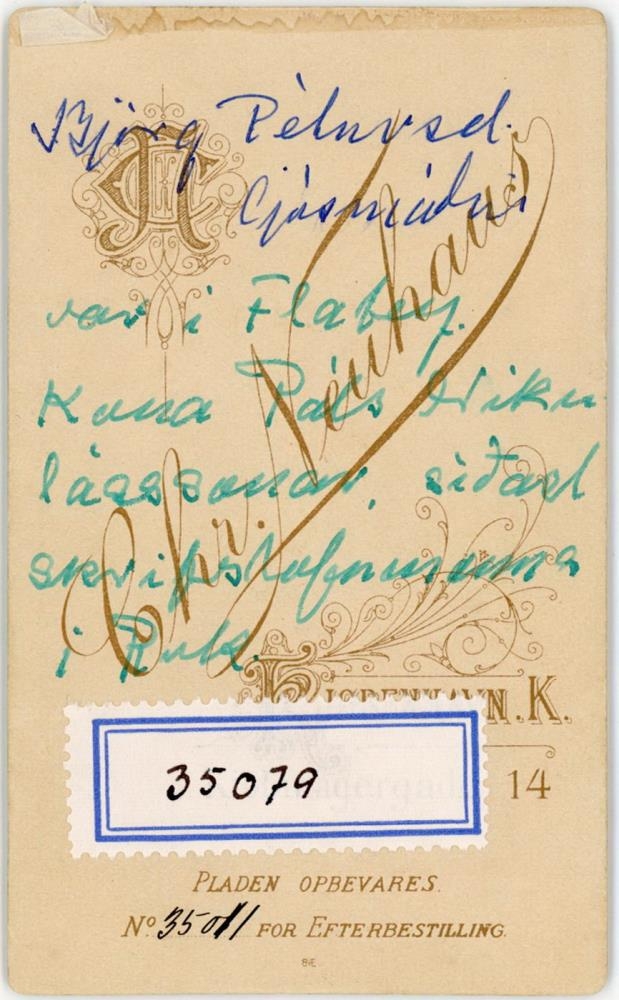 Björg Pétursd.
ljósmóðir
var í Flatey.
Kona Páls Niku
lássonar, síðast
skrifstofumanns
í Rvk.
Chr. Neuhaus
KJØBENHAVN. K.
14
35079
PLADEN OPBEVARES.
Nº 35011 FOR EFTERBESTILLING.